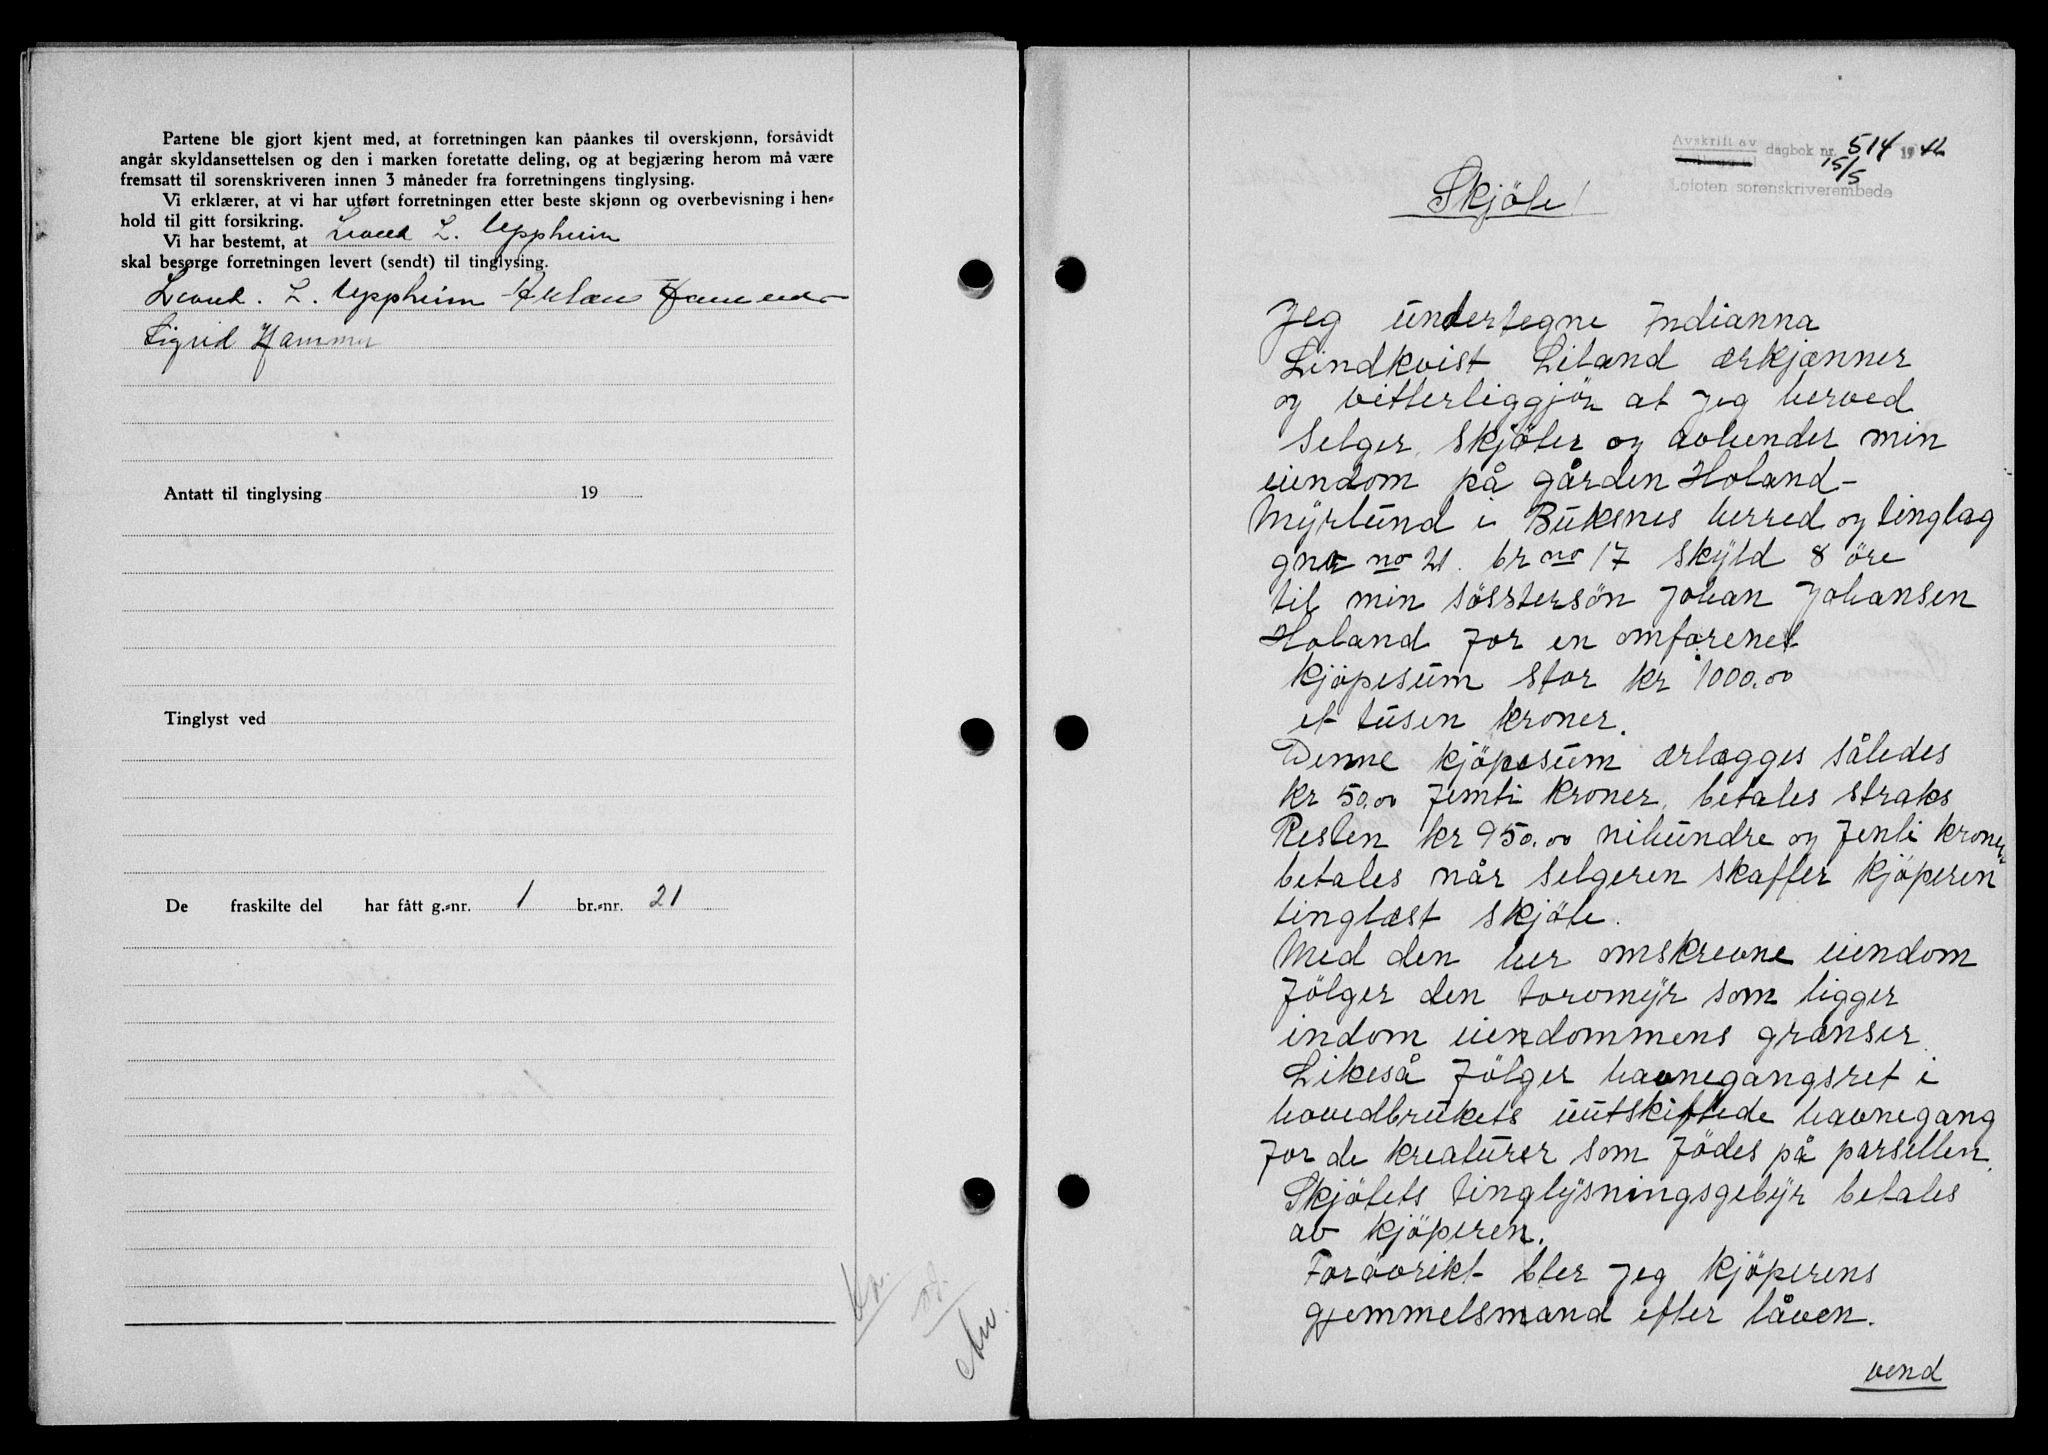 Partene ble gjort kjent med, at forretningen kan påankes til overskjønn, forsåvidt
angår skyldansettelsen og den i marken foretatte deling, og at begjæring herom må være
fremsatt til sorenskriveren innen 3 måneder fra forretningens tinglysing.
Vi erklærer, at vi har utført forretningen etter beste skjønn og overbevisning i hen-
hold til gitt forsikring.
Vi har bestemt, at L. Uppheim
skal besørge forretningen levert (sendt) til tinglysing.
L. Uppheim
Sigrid Hammer
Antatt til tinglysing 19
Tinglyst ved
De fraskilte del har fått g.-nr. 1 br.-nr. 21
Avskrift av dagbok nr. 514 1942
15/5
Lofoten sorenskriverembede
Skjöte
Jeg undertegne Indianna
Lindkvist Liland ærkjænner
og vitterliggjör at jeg herved
selger, skjöter og avhender min
eiendom på gården Holand-
Myrlund i Buksnes herred og tinglag
gnr no 21. br no 17 skyld 8 öre
til min sösstersön Johan Johansen
Holand for en omforenet
kjöpesum stor kr 1000.00
et tusen kroner.
Denne kjöpesum ærlægges således
kr 50.00 femti kroner, betales straks
Resten kr 950.00 nihundre og femti kroner
betales når selgeren skaffer kjöperen
tinglæst skjöte.
Med den her omskrevne eiendom
fölger den torvmyr som ligger
indom eiendommens grænser.
Likeså fölger havnegangsret i
hovedbrukets uutskiftede havnegang
for de kreaturer som födes på parsellen.
Skjötets tinglysningsgebyr betales
av kjöperen.
Forövrikt bler jeg kjöperens
gjemmelsmand efter låven.
vend